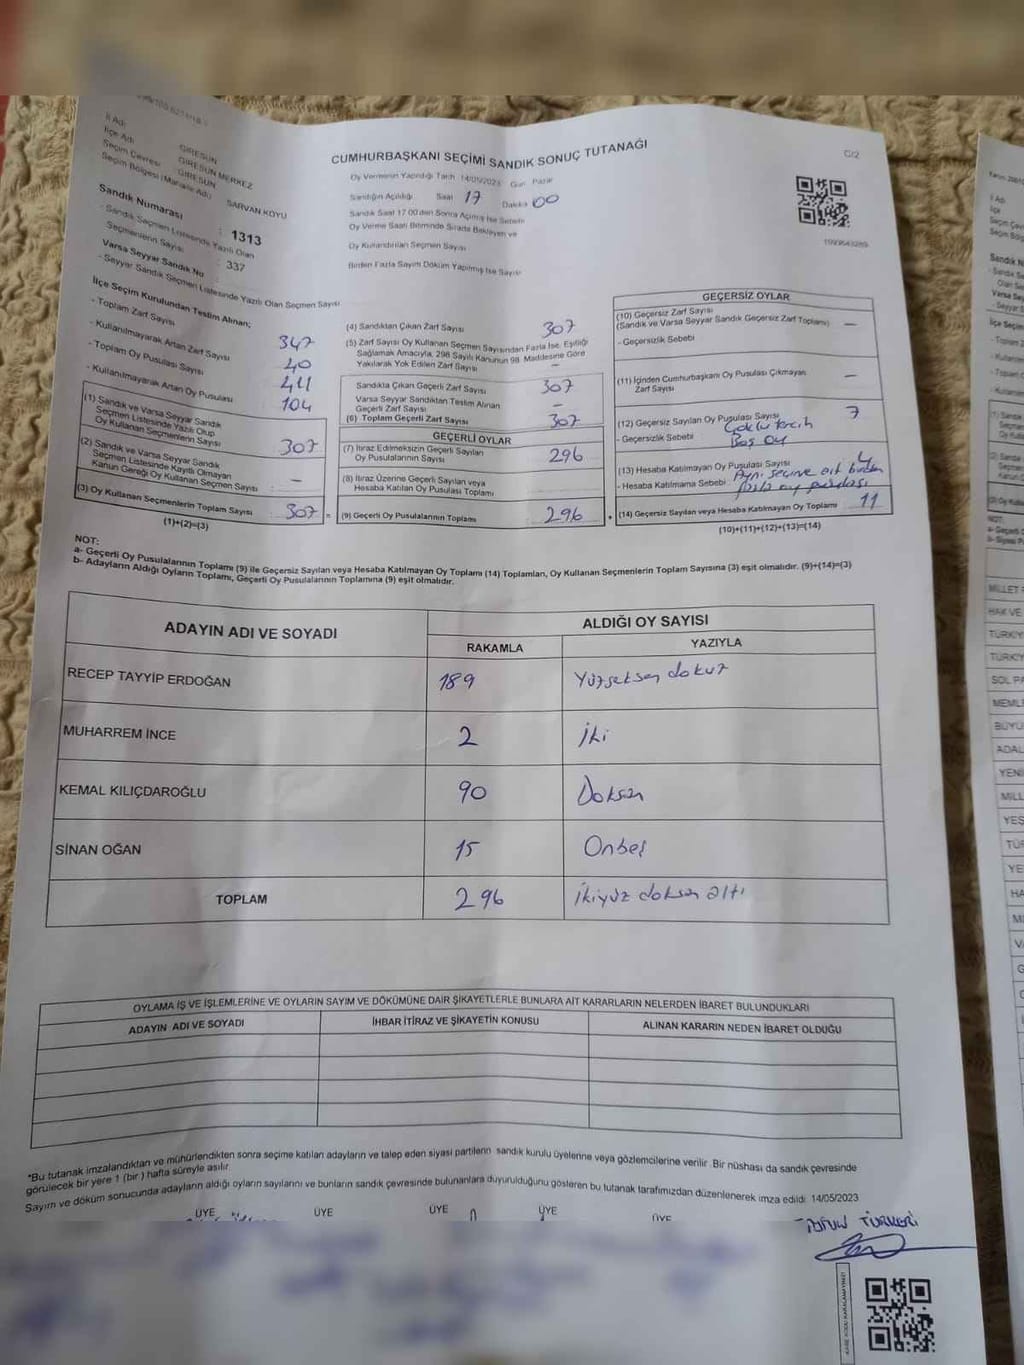 İl Adı: GİRESUN
İlçe Adı: GİRESUN MERKEZ
Seçim Çevresi: GİRESUN
Seçim Bölgesi (Mahalle Adı): SARVAN KÖYÜ
CUMHURBAŞKANI SEÇİMİ SANDIK SONUÇ TUTANAĞI
C/2
Oy Vermenin Yapıldığı Tarih 14/05/2023 Gün Pazar
Sandığın Açıldığı Saat 17 Dakika 00
Sandık Saat 17.00'den Sonra Açılmış İse Sebebi
Oy Verme Saati Bitiminde Sırada Bekleyen ve
Oy Kullandırılan Seçmen Sayısı
Birden Fazla Sayım Döküm Yapılmış İse Sayısı
Sandık Numarası : 1313
- Sandık Seçmen Listesinde Yazılı Olan
Seçmenlerin Sayısı : 337
Varsa Seyyar Sandık No
- Seyyar Sandık Seçmen Listesinde Yazılı Olan Seçmen Sayısı
İlçe Seçim Kurulundan Teslim Alınan;
- Toplam Zarf Sayısı 347
- Kullanılmayarak Artan Zarf Sayısı 40
- Toplam Oy Pusulası Sayısı 411
- Kullanılmayarak Artan Oy Pusulası 104
(1) Sandık ve Varsa Seyyar Sandık
Seçmen Listesinde Yazılı Olup
Oy Kullanan Seçmenlerin Sayısı : 307
(2) Sandık ve Varsa Seyyar Sandık
Seçmen Listesinde Kayıtlı Olmayan
Kanun Gereği Oy Kullanan Seçmen Sayısı : —
(3) Oy Kullanan Seçmenlerin Toplam Sayısı : 307
(1)+(2)=(3)
(4) Sandıktan Çıkan Zarf Sayısı 307
(5) Zarf Sayısı Oy Kullanan Seçmen Sayısından Fazla İse, Eşitliği
Sağlamak Amacıyla, 298 Sayılı Kanunun 98. Maddesine Göre
Yakılarak Yok Edilen Zarf Sayısı —
Sandıkta Çıkan Geçerli Zarf Sayısı 307
Varsa Seyyar Sandıktan Teslim Alınan
Geçerli Zarf Sayısı —
(6) Toplam Geçerli Zarf Sayısı 307
GEÇERLİ OYLAR
(7) İtiraz Edilmeksizin Geçerli Sayılan
Oy Pusulalarının Sayısı 296
(8) İtiraz Üzerine Geçerli Sayılan veya
Hesaba Katılan Oy Pusulası Toplamı
= (9) Geçerli Oy Pusulalarının Toplamı 296
GEÇERSİZ OYLAR
(10) Geçersiz Zarf Sayısı
(Sandık ve Varsa Seyyar Sandık Geçersiz Zarf Toplamı) —
- Geçersizlik Sebebi
(11) İçinden Cumhurbaşkanı Oy Pusulası Çıkmayan
Zarf Sayısı —
(12) Geçersiz Sayılan Oy Pusulası Sayısı 7
- Geçersizlik Sebebi Çoklu tercih
Boş oy
(13) Hesaba Katılmayan Oy Pusulası Sayısı 4
- Hesaba Katılmama Sebebi Aynı seçime ait birden
fazla oy pusulası
+ (14) Geçersiz Sayılan veya Hesaba Katılmayan Oy Toplamı 11
(10)+(11)+(12)+(13)=(14)
NOT:
a- Geçerli Oy Pusulalarının Toplamı (9) ile Geçersiz Sayılan veya Hesaba Katılmayan Oy Toplamı (14) Toplamları, Oy Kullanan Seçmenlerin Toplam Sayısına (3) eşit olmalıdır. (9)+(14)=(3)
b- Adayların Aldığı Oyların Toplamı, Geçerli Oy Pusulalarının Toplamına (9) eşit olmalıdır.
ADAYIN ADI VE SOYADI ALDIĞI OY SAYISI
RAKAMLA YAZIYLA
RECEP TAYYİP ERDOĞAN 189 Yüzseksen dokuz
MUHARREM İNCE 2 İki
KEMAL KILIÇDAROĞLU 90 Doksan
SİNAN OĞAN 15 Onbeş
TOPLAM 296 İkiyüz doksan altı
OYLAMA İŞ VE İŞLEMLERİNE VE OYLARIN SAYIM VE DÖKÜMÜNE DAİR ŞİKAYETLERLE BUNLARA AİT KARARLARIN NELERDEN İBARET BULUNDUKLARI
ADAYIN ADI VE SOYADI İHBAR İTİRAZ VE ŞİKAYETİN KONUSU ALINAN KARARIN NEDEN İBARET OLDUĞU
*Bu tutanak imzalandıktan ve mühürlendikten sonra seçime katılan adayların ve talep eden siyasi partilerin sandık kurulu üyelerine veya gözlemcilerine verilir. Bir nüshası da sandık çevresinde
görülecek bir yere 1 (bir) hafta süreyle asılır.
Sayım ve döküm sonucunda adayların aldığı oyların sayılarını ve bunların sandık çevresinde bulunanlara duyurulduğunu gösteren bu tutanak tarafımızdan düzenlenerek imza edildi. 14/05/2023
ÜYE ÜYE ÜYE ÜYE ÜYE
MİLLET
HAK VE
SOL PA
YENİ
MİLL